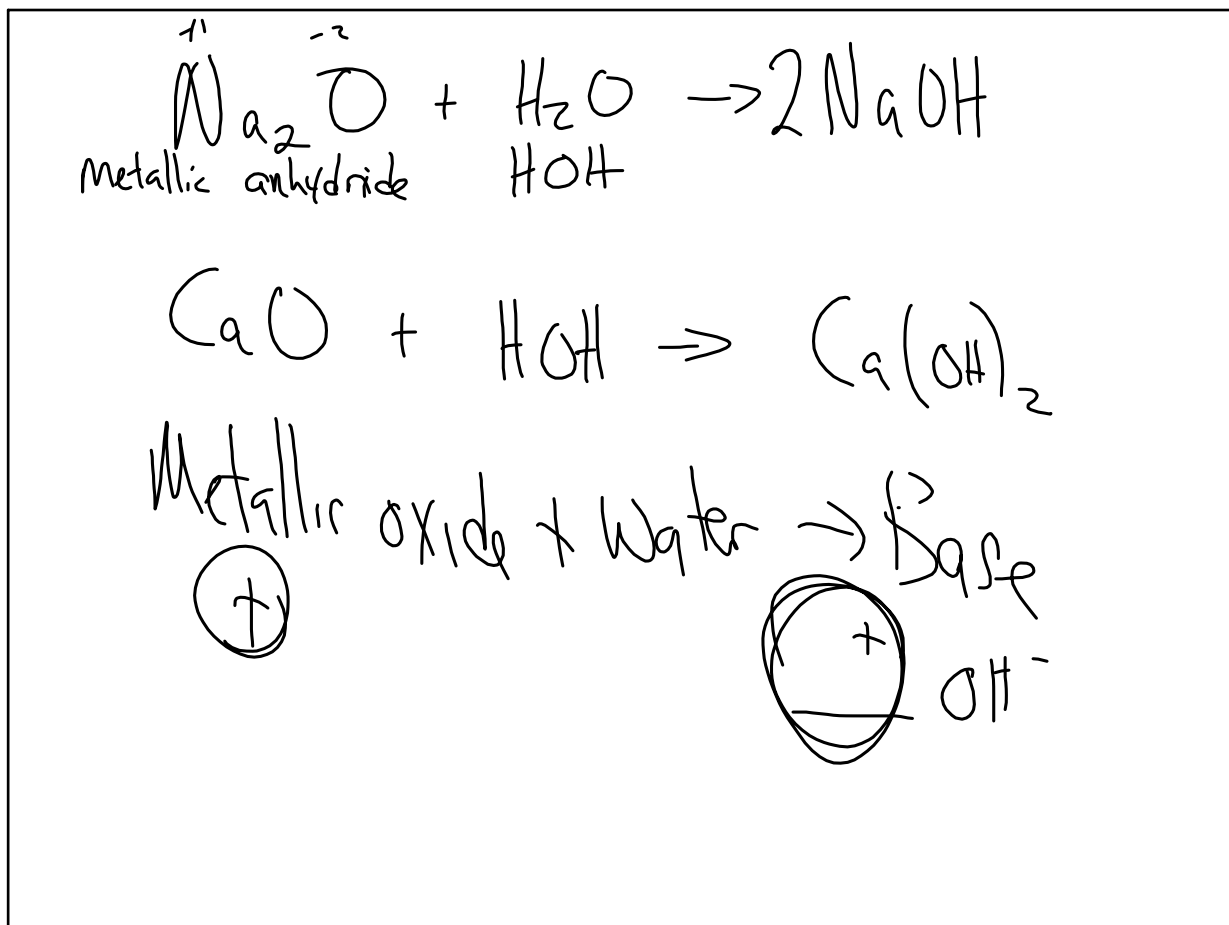 +1 -2
Na2O + H2O → 2NaOH
Metallic anhydride HOH
CaO + HOH → Ca(OH)2
Metallic oxide + Water → Base
+ +
__ OH-